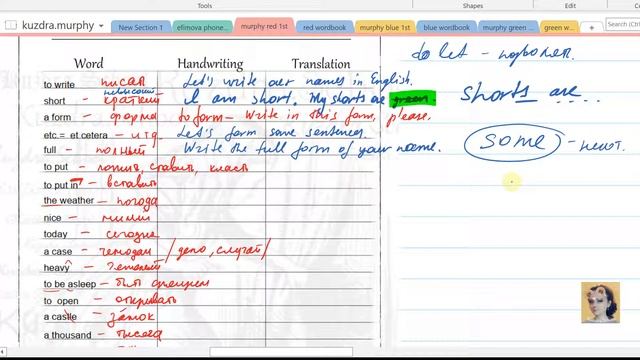 Tools
Shapes
kuzdra.murphy
New Section 1
efimova phone...
murphy red 1st
red wordbook
murphy blue 1st
blue wordbook
murphy green ...
green w...
Search (Ctrl
Word Handwriting Translation
to write писать Let's write our names in English.
short - краткий I am short. My shorts are green.
a form - форма to form - Write in this form, please.
etc.= et cetera - итд Let's form some sentences.
full - полный Write the full form of your name.
to put - ложить, ставить, класть
to put in - вставить
the weather - погода
nice - милый
today - сегодня
a case - чемодан /дело, случай/
heavy - тяжелый
to be asleep - быть спящим
to open - открывать
a castle - замок
a thousand - тысяча
to let -
shorts are ...
some -